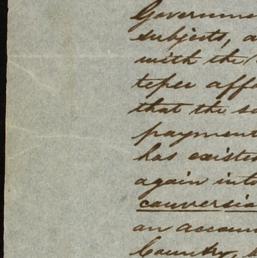 Governme
subjects, a
with the
that the s
payment
has existe
again int
conversi
an accoun
Country,